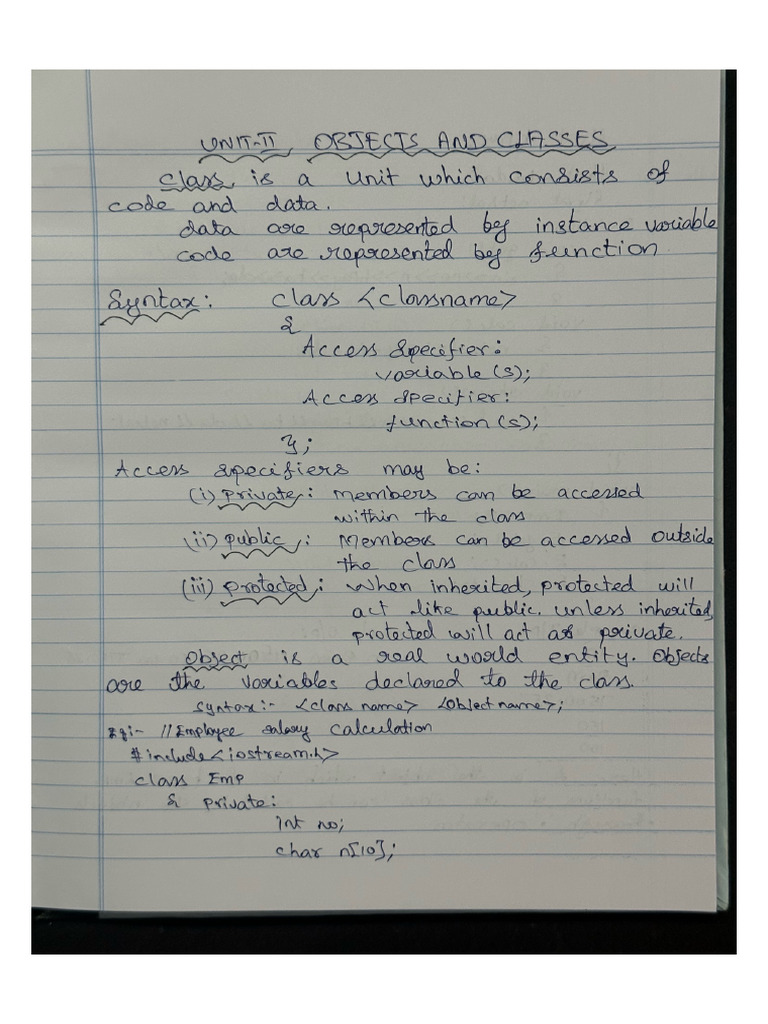 UNIT-II, OBJECTS AND CLASSES
Class is a Unit which consists of
code and data.
data are represented by instance variable
code are represented by function
Syntax: class <classname>
{
Access Specifier:
variable(s);
Access specifier:
function(s);
};
Access specifiers may be:
(i) Private: Members can be accessed
within the class
(ii) public: Members can be accessed outside
the class
(iii) protected: When inherited, protected will
act like public. unless inherited,
protected will act as private.
Object is a real world entity. Objects
are the variables declared to the class.
Syntax:- <class name> <Object name>;
Eg:- //Employee salary calculation
#include<iostream.h>
class Emp
{ private:
int no;
char n[10];